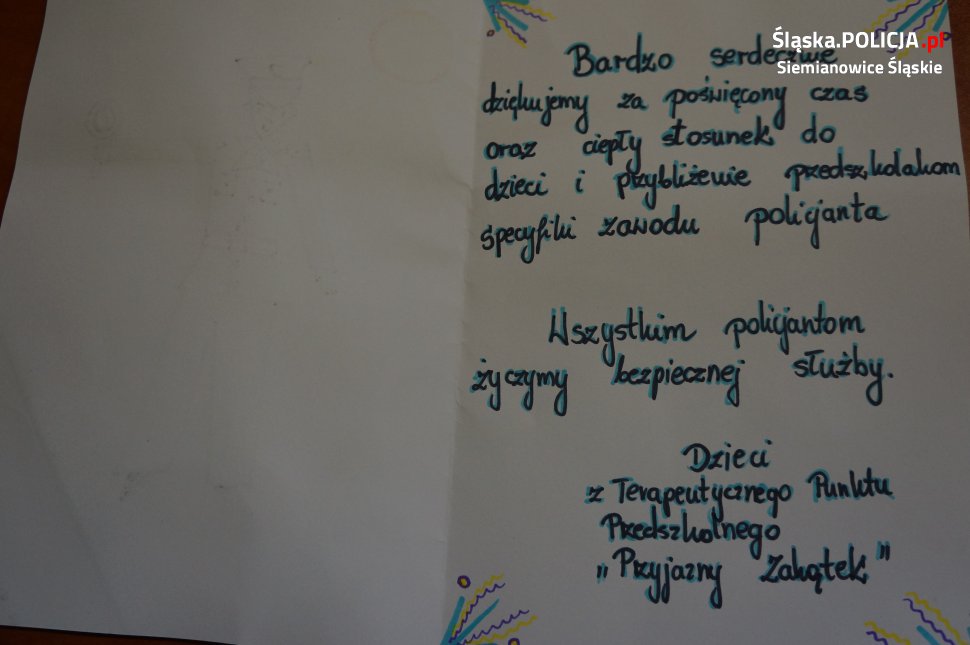 Śląska.POLICJA.pl
Siemianowice Śląskie
Bardzo serdecznie
dziękujemy za poświęcony czas
oraz ciepły stosunek do
dzieci i przybliżenie przedszkolakom
specyfiki zawodu policjanta
Wszystkim policjantom
życzymy bezpiecznej służby.
Dzieci
z Terapeutycznego Punktu
Przedszkolnego
„Przyjazny Zakątek”